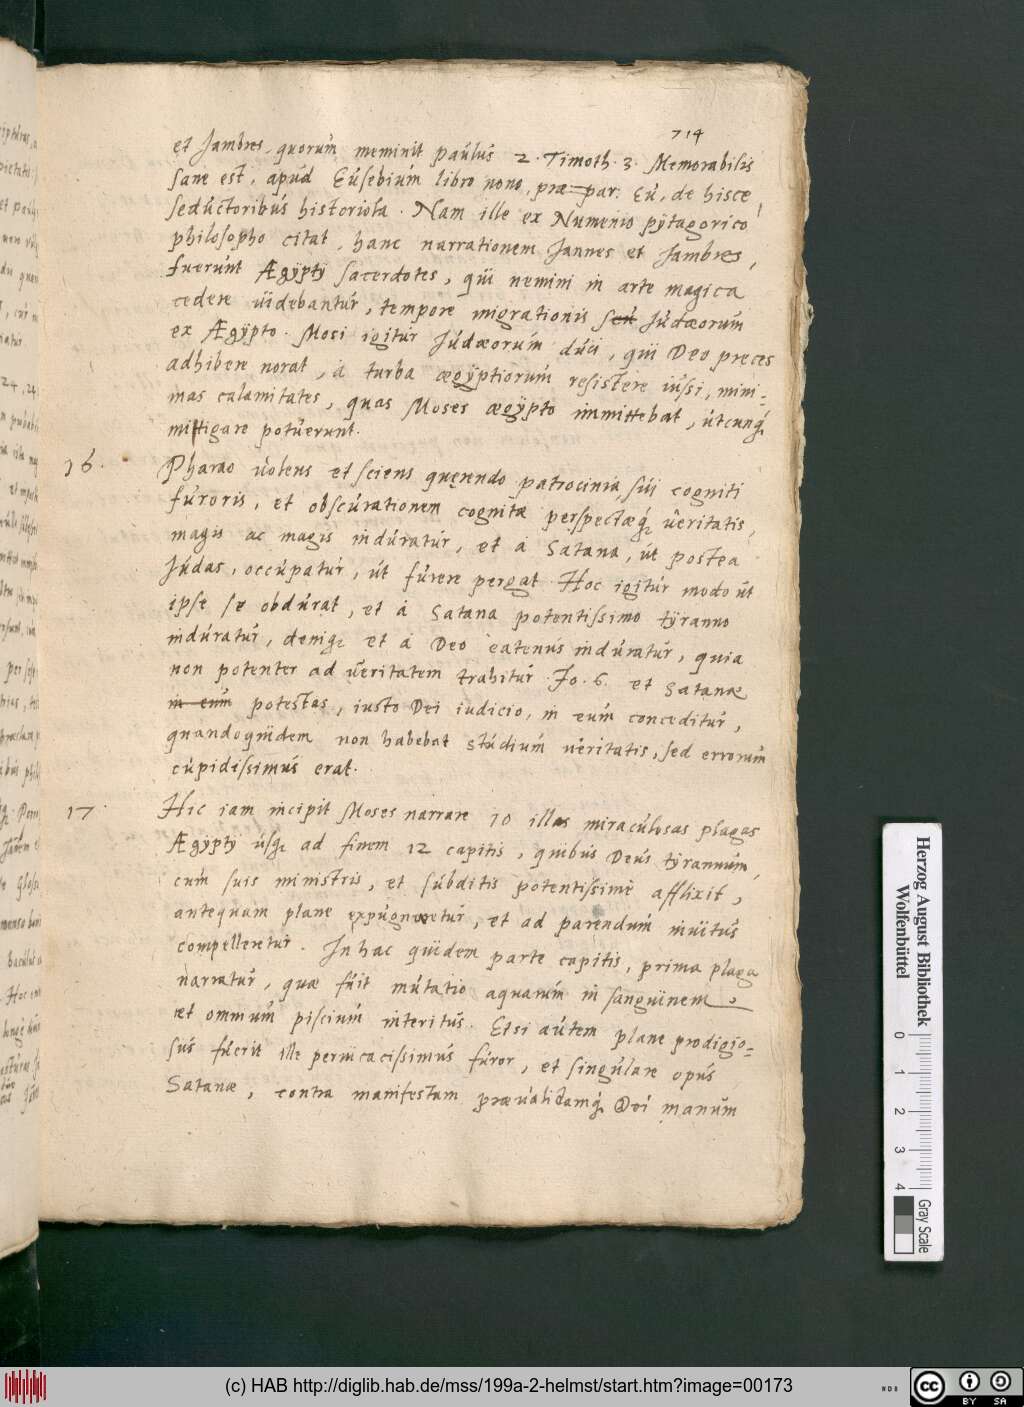 714
et Jambres, quorum meminit Paulus 2. Timoth. 3. Memorabilis
sane est, apud Eusebium libro nono, præ=par: Eu, de hisce
seductoribus historiola. Nam ille ex Numenio pÿtagorico
philosopho citat, hanc narrationem Jannes et Jambres,
fuerunt Ægÿptÿ sacerdotes, qui nemini in arte magica
cedere uidebantur, tempore migrationis Judæorum
ex Ægÿpto. Mosi igitur Judæorum duci, qui Deo preces
adhibere norat, à turba ægÿptiorum resistere iussi, mini=
mas calamitates, quas Moses ægÿpto immittebat, utcunq́
mittigare potuerunt.
16. Pharao uolens et sciens quęrendo patrocinia, sui cogniti
furoris, et obscurationem cognitæ perspectæq́ ueritatis,
magis ac magis induratur, et à Satana, ut postea
Judas, occupatur, ut furere pergat. Hoc igitur modo ut
ipse se obdurat, et à Satana potentissimo tÿranno
induratur, deniq́ et à Deo eatenus induratur, quia
non potenter ad ueritatem trahitur. Jo. 6. et Satanæ
in eum potestas, iusto Dei iudicio, in eum conceditur,
quandoquidem non habebat studium ueritatis, sed errorum
cupidissimus erat.
17. Hic iam incipit Moses narrare 10 illas miraculosas plagas
Ægÿptÿ usq́ ad finem 12 capitis, quibus Deus tÿrannum,
cum suis ministris, et subditis potentissimè afflixit,
antequam plane expugnaretur, et ad parendum inuitus
compelleretur. In hac quidem parte capitis, prima plaga
narratur, quæ fuit mutatio aquarum in sanguinem,
et omnium piscium interitus. Etsi autem plane prodigio=
sus fuerit ille peruicacissimus furor, et singulare opus
Satanæ, contra manifestam præualidamq́ Dei manum
Herzog August Bibliothek
Wolfenbüttel
0 1 2 3 4
Gray Scale
(c) HAB http://diglib.hab.de/mss/199a-2-helmst/start.htm?image=00173
cc BY SA